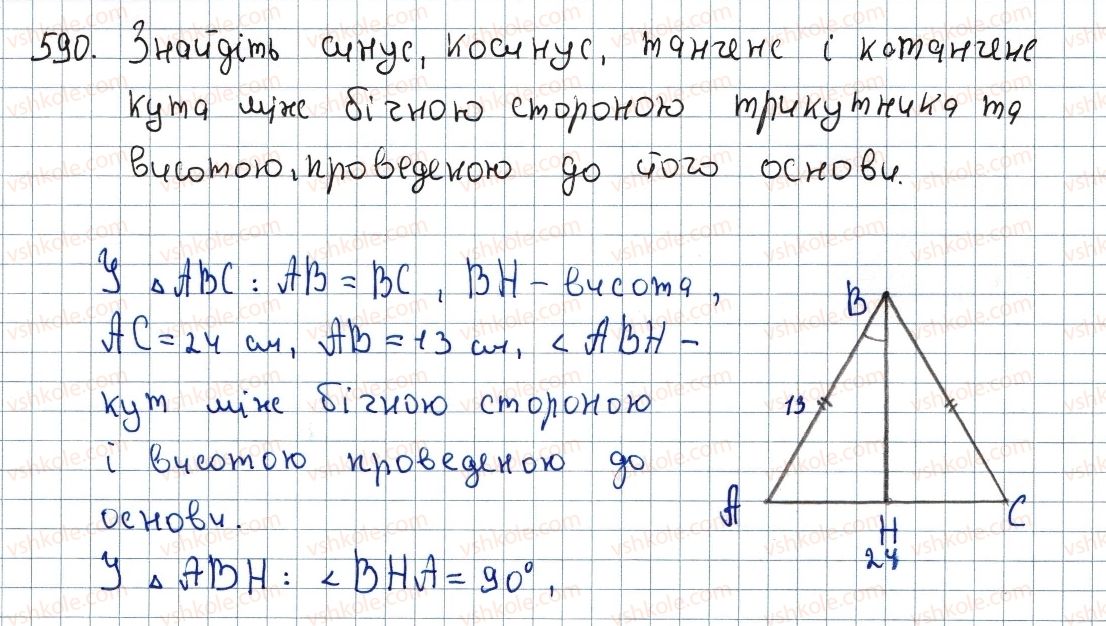 590. Знайдіть синус, косинус, тангенс і котангенс
кута між бічною стороною трикутника та
висотою, проведеною до його основи.
У △ ABC : AB = BC, BH – висота,
AC = 24 см, AB = 13 см, < ABH –
кут між бічною стороною
і висотою проведеною до
основи.
У △ ABH : < BHA = 90°,
B
13
A
H
C
24
vshkole.com